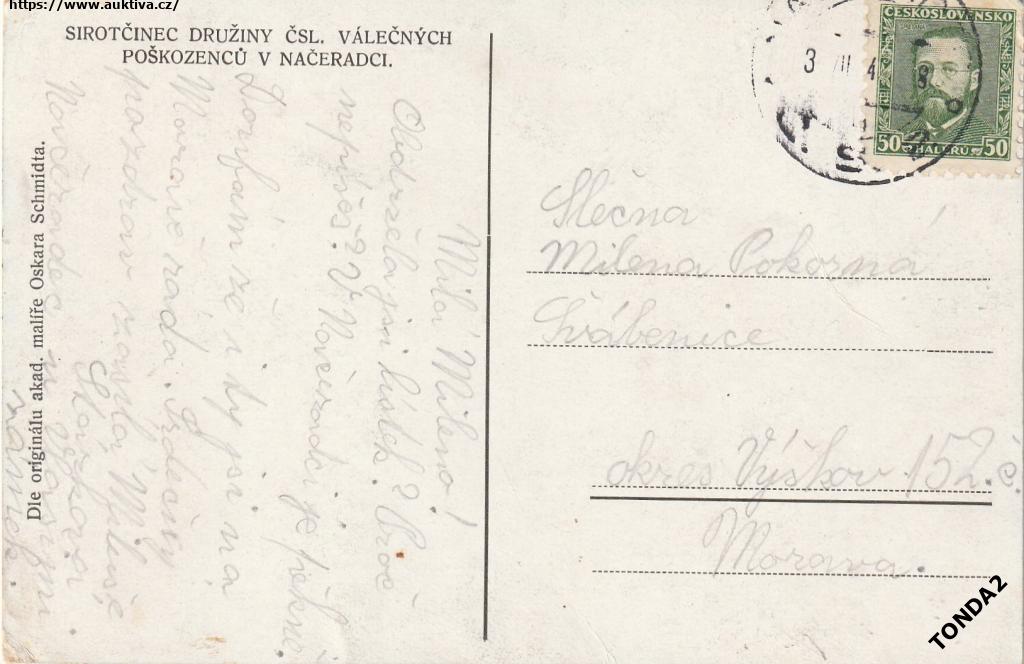 https://www.auktiva.cz/
SIROTČINEC DRUŽINY ČSL. VÁLEČNÝCH
POŠKOZENCŮ V NAČERADCI.
Dle originálu akad. malíře Oskara Schmidta.
Milá Mileno!
Obdržela jsi lístek? Proč
nepíšeš? V Načeradci je pěkně
Doufám že i ty jsi na
Moravě ráda. Srdečný
pozdrav zasílá Miluše
ČESKOSLOVENSKO
50 HALÉŘŮ 50
3 VII 4 8
Slečna
Milena Pokorná
Švábenice
okres Výškov 152.č.
Morava.
TONDA2